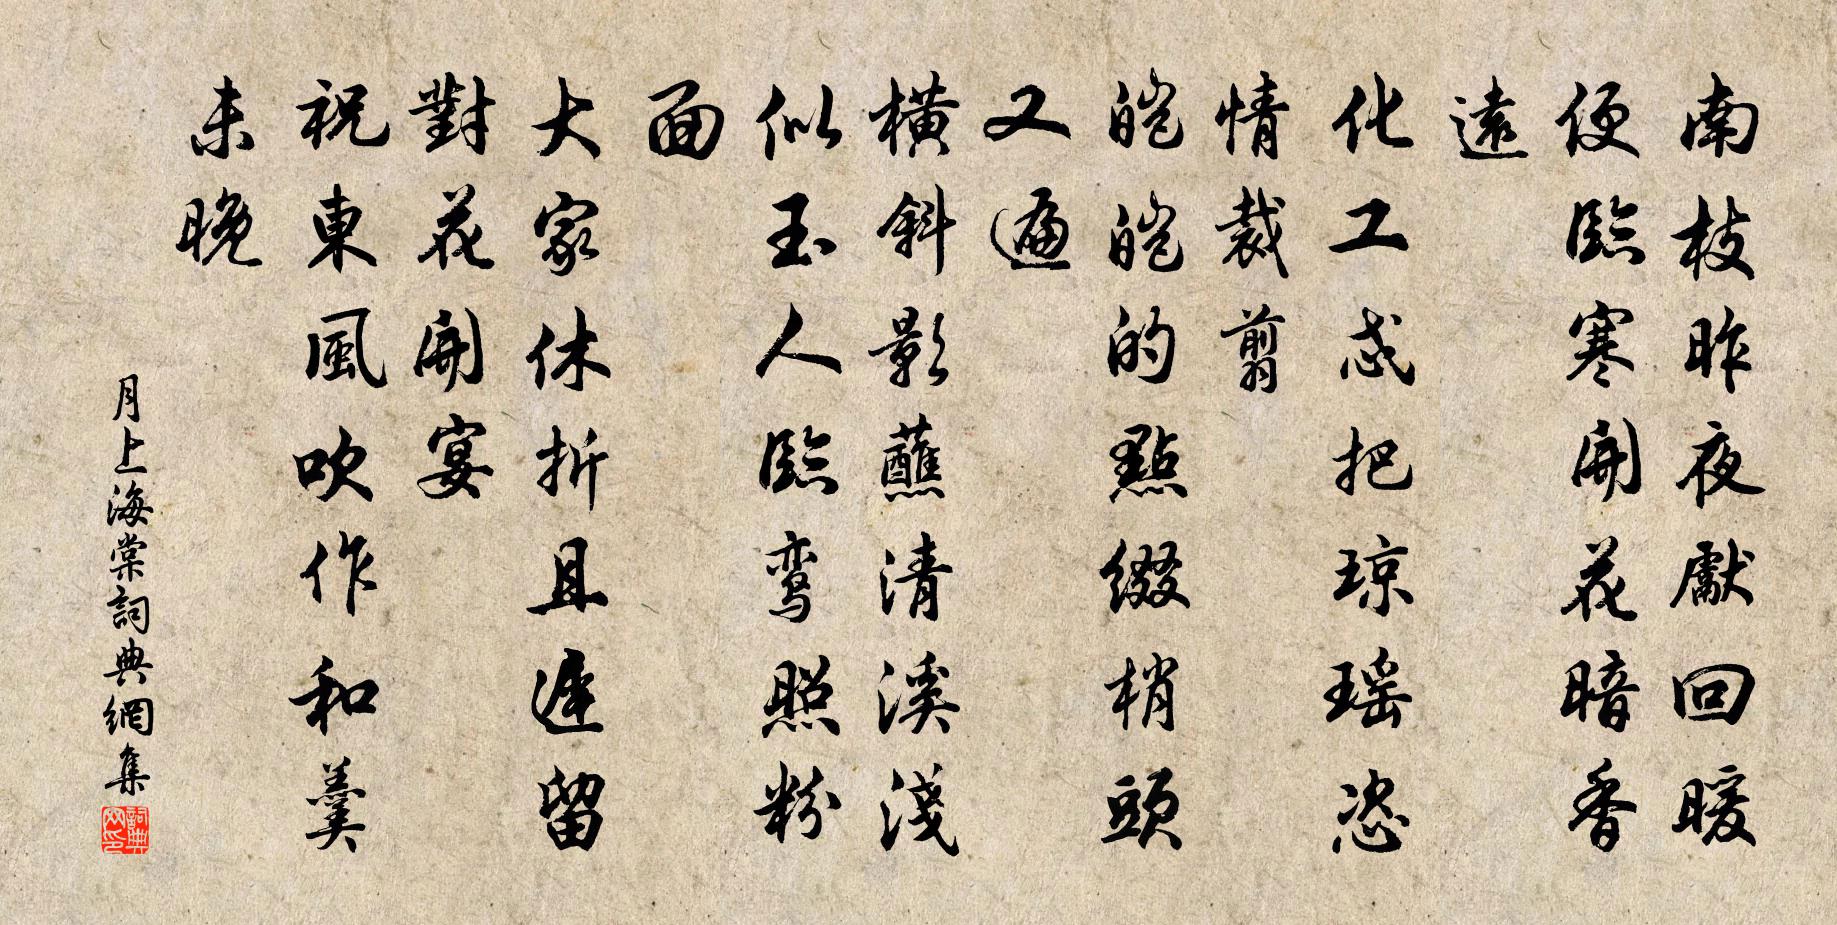 南枝昨夜獻回暖
便臨寒開花暗香
遠
化工忒把琼瑶恣
情裁剪
皑皑的點綴梢頭
又遍
橫斜影蘸清溪淺
似玉人臨鸾照粉
面
大家休折且遲留
對花開宴
祝東風吹作和羹
未晚
月上海棠詞典網集
詞典
网印